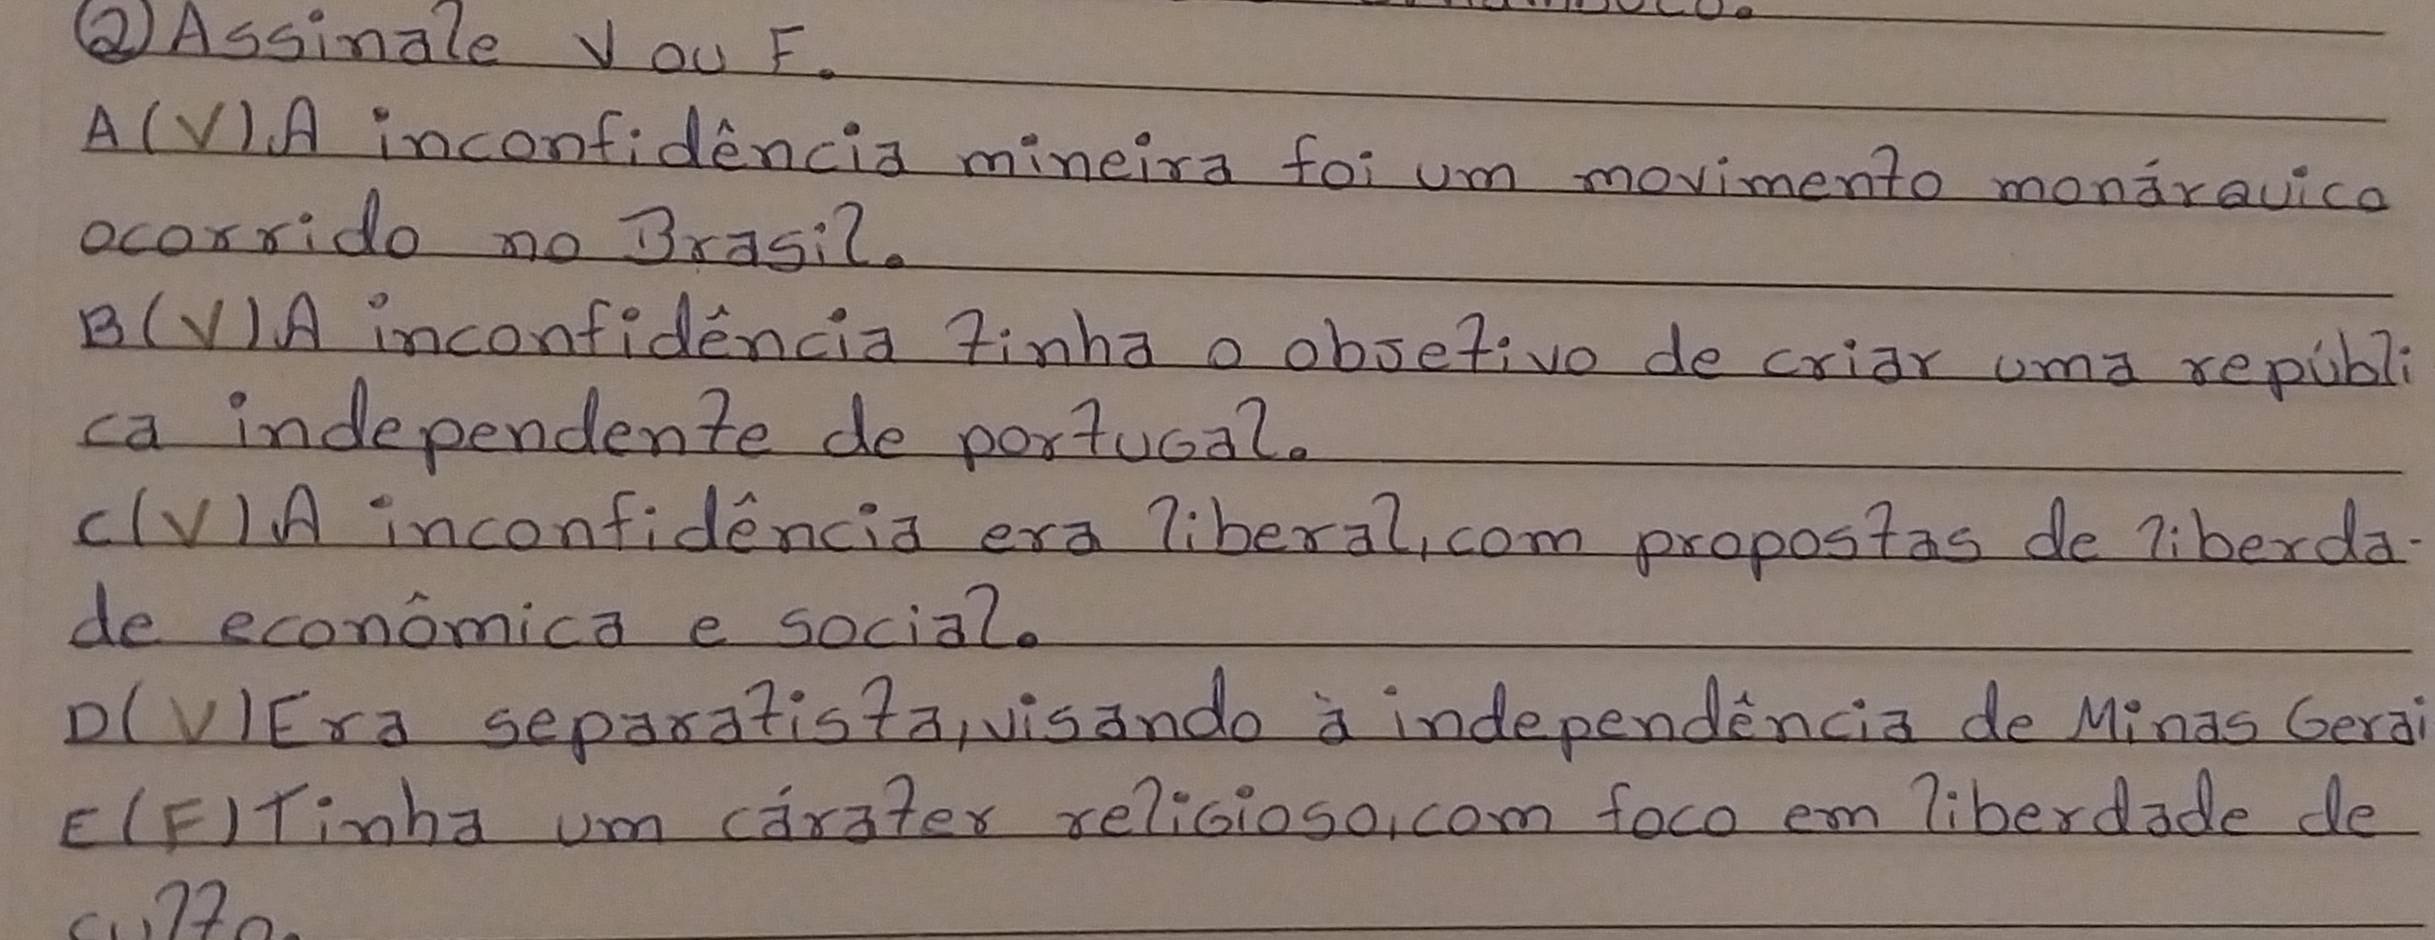 ② Assinale V ou F.
A(V) A inconfidência mineira foi um movimento monárquico
ocorrido no Brasil.
B(V) A inconfidência tinha o objetivo de criar uma repúbli
ca independente de portugal.
C(V) A inconfidência era liberal, com propostas de liberda-
de econômica e social.
D(V) Era separatista, visando à independência de Minas Gerai
E(F) Tinha um cárater religioso, com foco em liberdade de
culto.